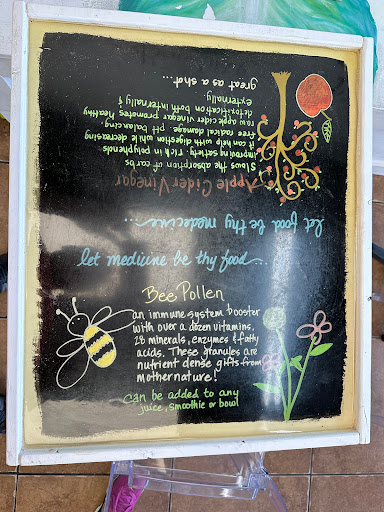 let medicine be thy food...
Bee Pollen
an immune system booster
with over a dozen vitamins,
28 minerals, enzymes & fatty
acids. These granules are
nutrient dense gifts from
mother nature!
Can be added to any
juice, smoothie or bowl
let food be thy medecine...
Apple Cider Vinegar
Slows the absorption of carbs
improving satiety. rich in polyphenols
it can help with digestion while decreasing
free radical damage. pH balancing.
raw apple cider vinegar promotes healthy
detoxification both internally &
externally.
great as a shot...